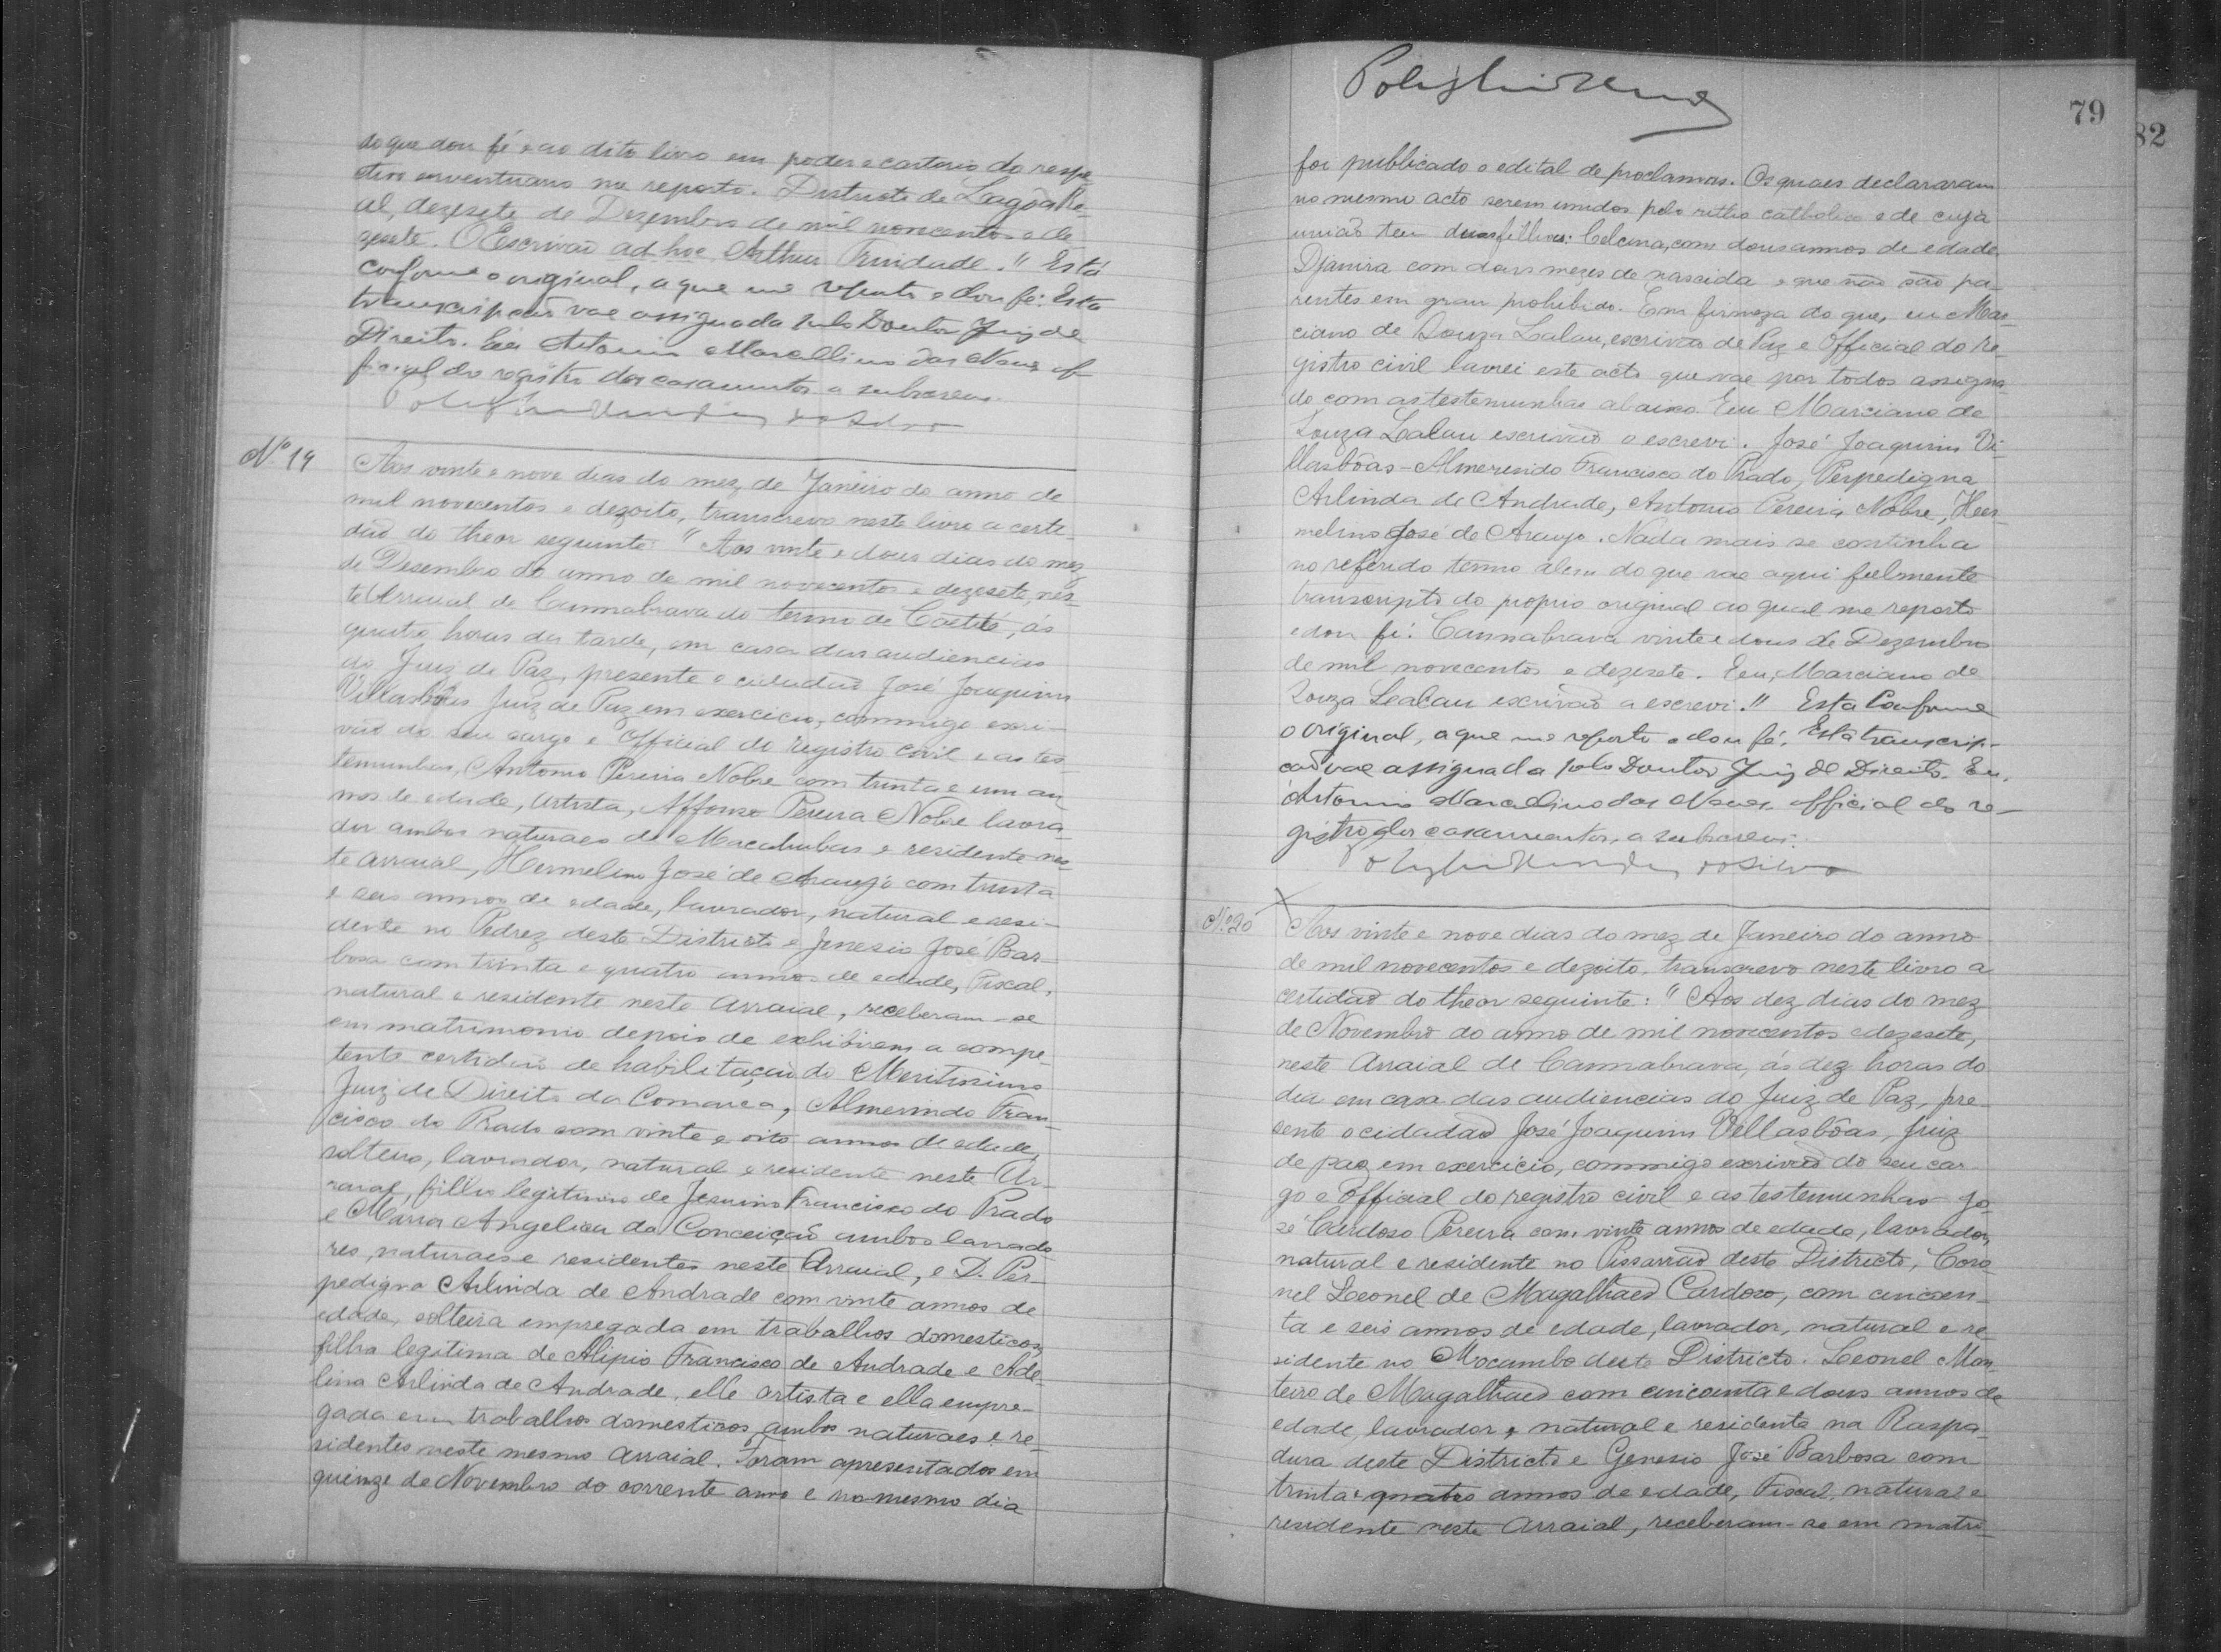 do que dou fé e ao dito livro em poder e cartorio do respe-
ctivo serventuario me reporto. Districto de Lagôa Re-
al, dezesete de Dezembro de mil novecentos e de-
zesete. O Escrivão ad hoc Arthur Trindade." Está
conforme o original, a que me reporto e dou fé. Esta
transcripção vae assignada pelo Doutor Juiz de
Direito. Eu Antonio Marcellino das Neves of-
ficial do registro dos casamentos a subscrevi.
Nº 19
Aos vinte e nove dias do mez de Janeiro do anno de
mil novecentos e dezoito, transcrevo neste livro a certi-
dão do theor seguinte: "Aos vinte e dous dias do mez
de Desembro do anno de mil novecentos e dezesete, nes-
te Arraial de Cannabrava do termo de Caetité, ás
quatro horas da tarde, em casa das audiencias
do Juiz de Paz, presente o cidadão José Joaquim
Villasbôas Juiz de Paz em exercicio, commigo escri-
vão do seu cargo e Official do registro civil e as tes-
temunhas, Antonio Pereira Nobre com trinta e um an-
nos de edade, artista, Affonso Pereira Nobre lavra-
dor ambos naturaes de Macahubas e residente nes-
te arraial, Hermelino José de Araujo com trinta
e seis annos de edade, lavrador, natural e resi-
dente no Pedrez deste Districto e Jenesio José Bar-
bosa com trinta e quatro annos de edade, Fiscal,
natural e residente neste Arraial, receberam-se
em matrimonio depois de exhibirem a compe-
tente certidão de habilitação do Meritissimo
Juiz de Direito da Comarca, Almerindo Fran-
cisco do Prado com vinte e oito annos de edade,
solteiro, lavrador, natural e residente neste Ar-
raial, filho legitimo de Jesuino Francisco do Prado
e Maria Angelica da Conceição ambos lavrado-
res, naturaes e residentes neste Arraial, e D. Per-
pedigna Arlinda de Andrade com vinte annos de
edade, solteira empregada em trabalhos domesticos,
filha legitima de Alipio Francisco de Andrade e Ade-
lina Arlinda de Andrade, elle artista e ella empre-
gada em trabalhos domesticos, ambos naturaes e re-
sidentes neste mesmo Arraial. Foram apresentados em
quinze de Novembro do corrente anno e no mesmo dia
79
82
foi publicado o edital de proclamas. Os quaes declararam
no mesmo acto serem unidos pelo ritho catholico e de cuja
união teu duas filhas: Celcina, com dous annos de edade,
Djanira com dous mezes de nascida e que não são pa-
rentes em grau prohibido. Em firmeza do que, eu Mar-
ciano de Souza Lalau, escrivão de Paz e Official do re-
gistro civil lavrei este acto que vae por todos assigna-
do com as testemunhas abaixo. Eu Marciano de
Souza Lalau escrivão o escrevi. José Joaquim Vi-
llasbôas-Almerindo Francisco do Prado, Perpedigna
Arlinda de Andrade, Antonio Pereira Nobre, Her-
melino José de Araujo. Nada mais se continha
no referido termo alem do que vae aqui fielmente
transcripto do proprio original ao qual me reporto
e dou fé. Cannabrava vinte e dous de Dezembro
de mil novecentos e dezesete. Eu, Marciano de
Souza Lalau escrivão a escrevi." Esta Conforme
o original, a que me reporto e dou fé. Esta transcrip-
ção vae assignada pelo Doutor Juiz de Direito. Eu,
Antonio Marcellino das Neves official do re-
gistro dos casamentos, a subscrevi.
Nº 20
Aos vinte e nove dias do mez de Janeiro do anno
de mil novecentos e dezoito, transcrevo neste livro a
certidão do theor seguinte: "Aos dez dias do mez
de Novembro do anno de mil novecentos e dezesete,
neste Arraial de Cannabrava, ás dez horas do
dia em casa das audiencias do Juiz de Paz, pre-
sente o cidadão José Joaquim Villasbôas, Juiz
de paz em exercicio, commigo escrivão do seu car-
go e Official do registro civil e as testemunhas Jo-
sé Cardoso Pereira com vinte annos de edade, lavrador,
natural e residente no Pissarrão deste Districto, Coro-
nel Leonel de Magalhães Cardoso, com cincoen-
ta e seis annos de edade, lavrador, natural e re-
sidente no Mocambo deste Districto. Leonel Mon-
teiro de Magalhães com cincoenta e dous annos de
edade, lavrador, natural e residente na Raspa-
dura deste Districto e Genesio José Barbosa com
trinta e quatro annos de edade, Fiscal, natural e
residente neste Arraial, receberam-se em matri-